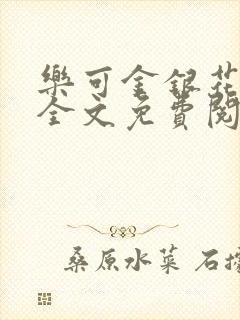 樂可金銀花
全文免費閱
桑原水菜 石